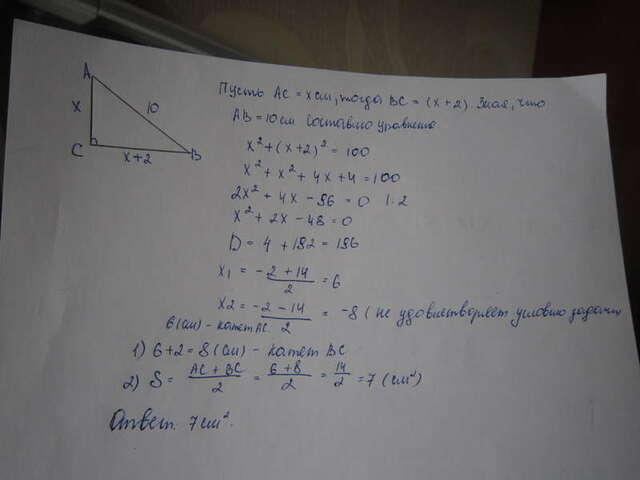 A
x
10
C
x+2
B
Пусть AC = x см, тогда BC = (x+2). Зная, что
AB = 10 см составлю уравнение
x² + (x+2)² = 100
x² + x² + 4x + 4 = 100
2x² + 4x - 96 = 0 |:2
x² + 2x - 48 = 0
D = 4 + 192 = 196
x1 = (-2+14)/2 = 6
x2 = (-2-14)/2 = -8 (не удовлетворяет условию задачи)
6(см) - катет AC.
1) 6+2=8(см) - катет BC
2) S = (AC + BC)/2 = (6+8)/2 = 14/2 = 7 (см²)
Ответ. 7 см².